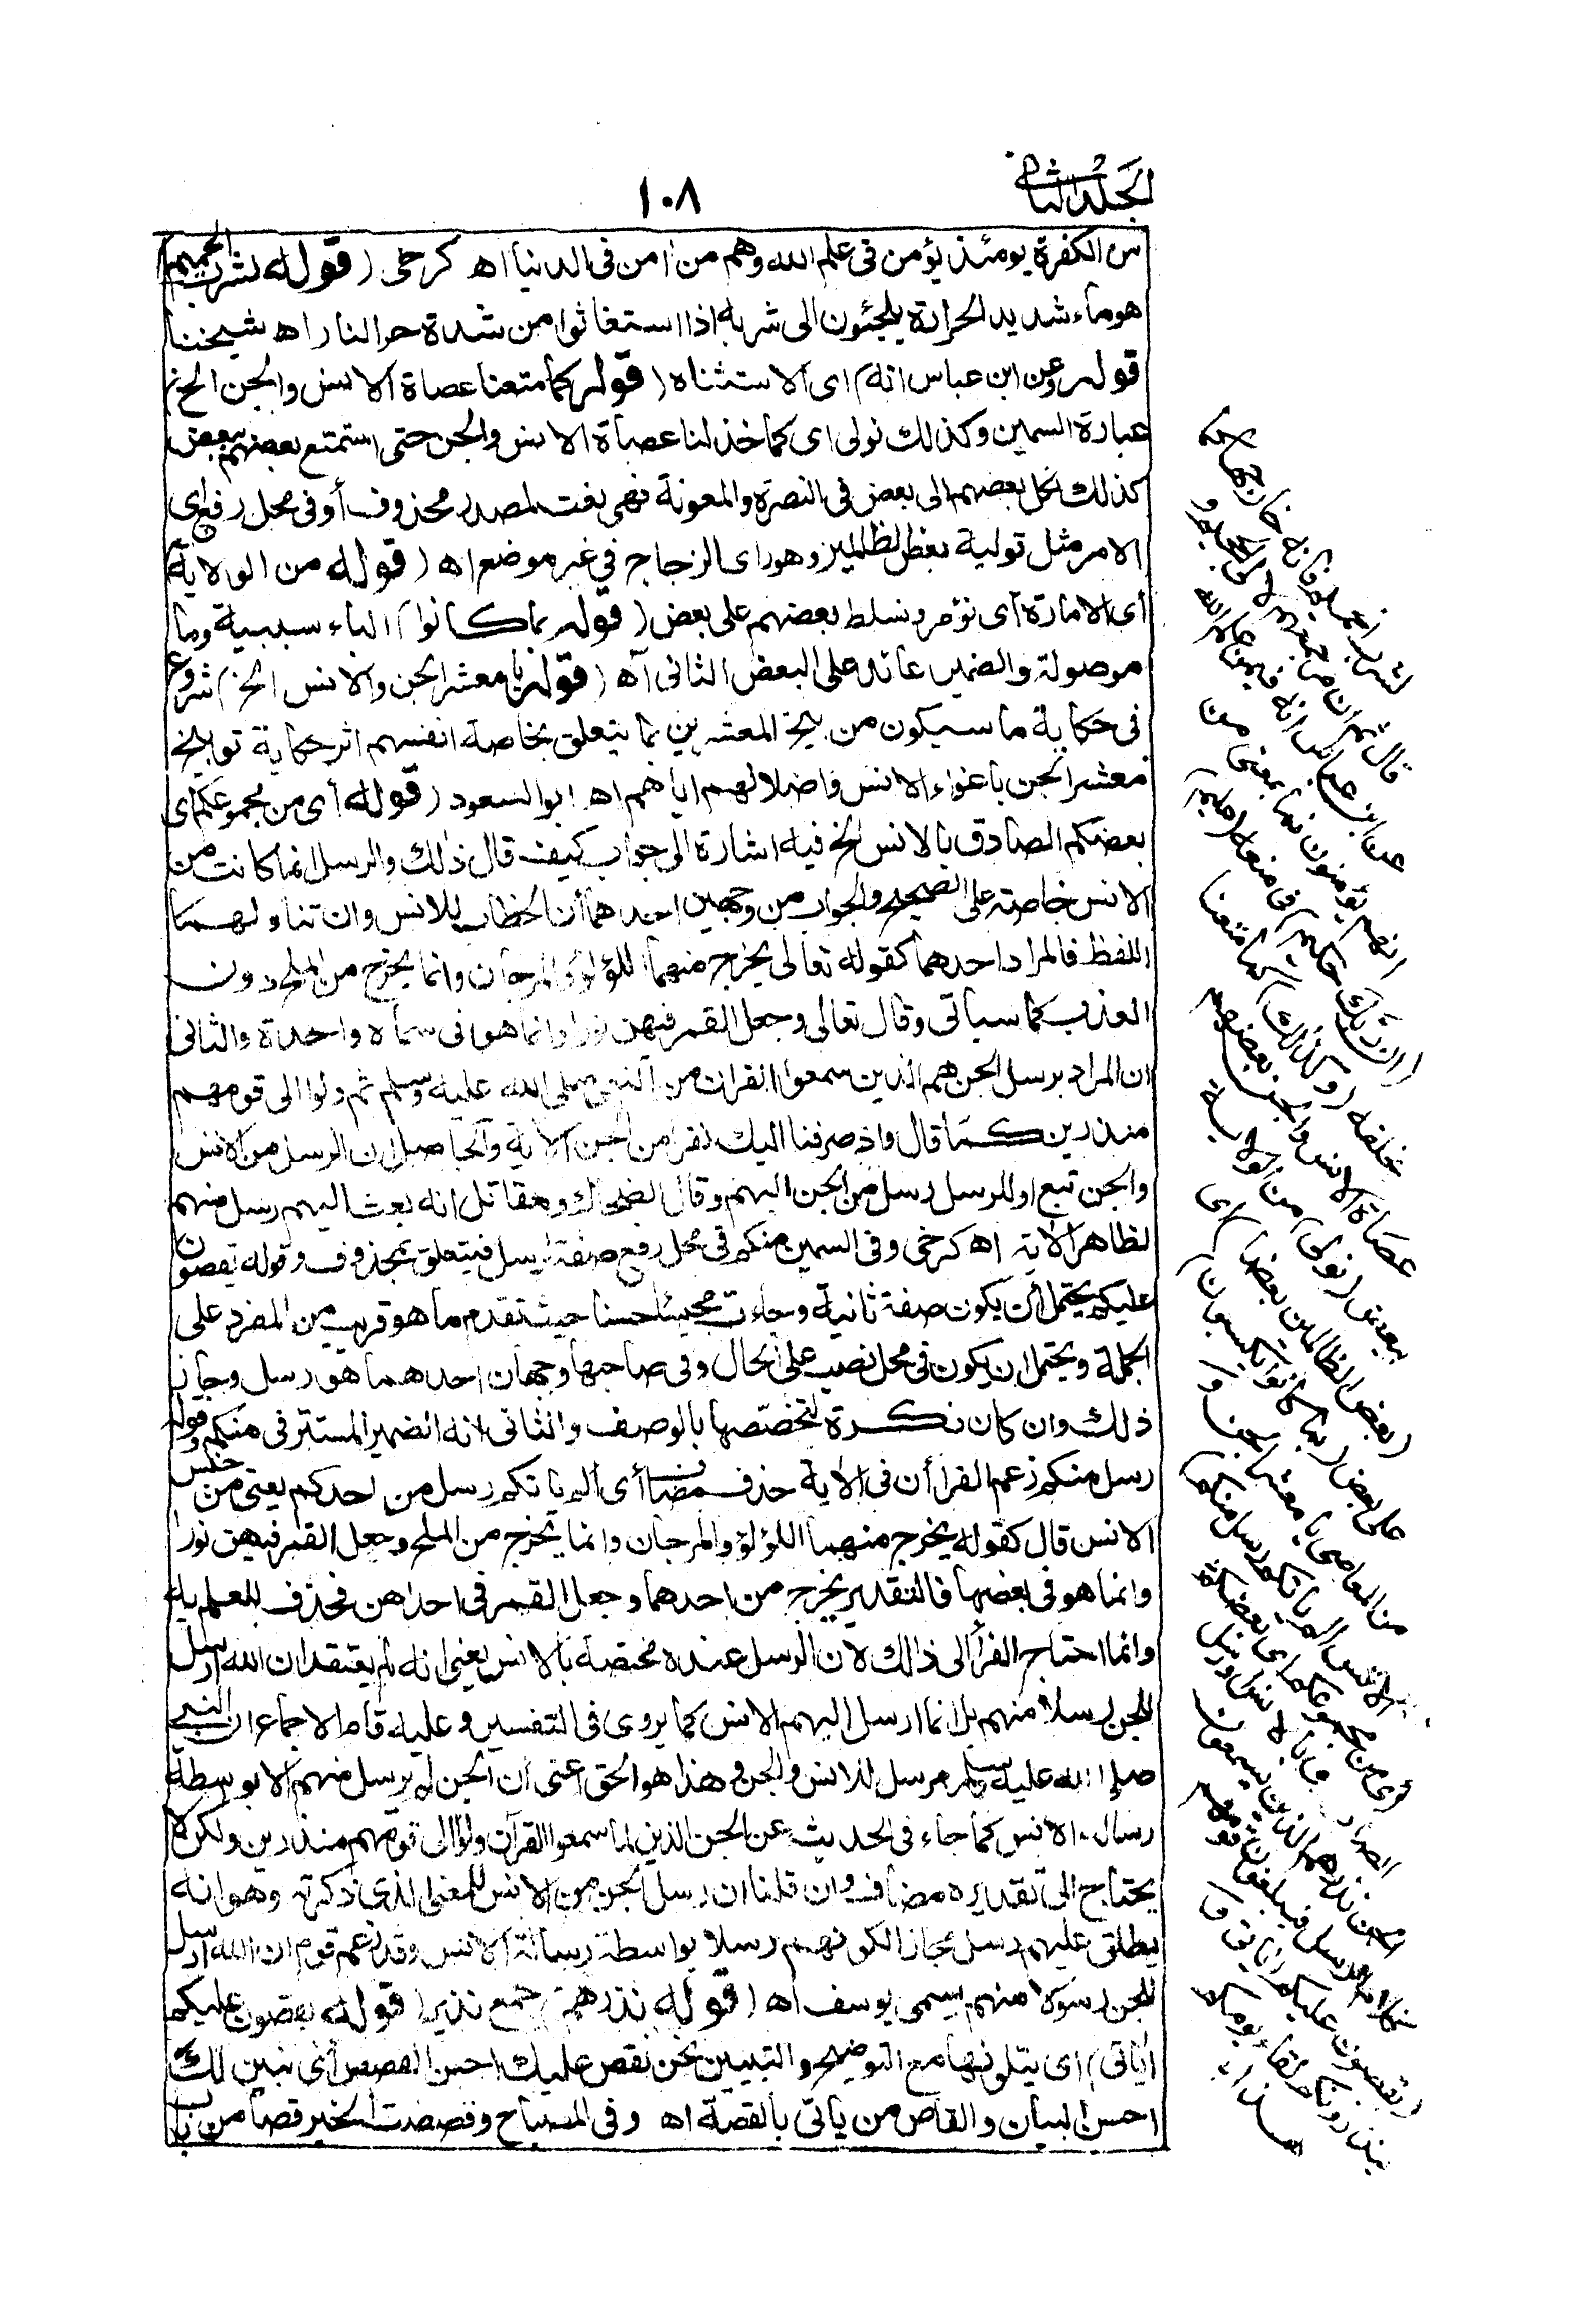 الجلد الثانى
١٠٨
من الكفرة يومئذ يؤمن فى علم الله وهم من امن فى الدنيا اه كرخى (قوله لشرب الحميم)
هو ماء شديد الحرارة يلجئون الى شربه اذا استغاثوا من شدة حر النار اه شيخنا
قوله وعن ابن عباس انه) اى الاستثناء (قوله كما متعنا عصاة الانس والجن الخ)
عبارة السمين وكذلك نولى اى كما خذلنا عصاة الانس والجن حتى استمتع بعضهم ببعض
كذلك نكل بعضهم الى بعض فى النصرة والمعونة فهى نعت لمصدر محذوف أو فى محل رفع اى
الامر مثل تولية بعض الظلمين وهو راى الزجاج في غير موضع اه (قوله من الولاية)
أى الامارة أى نؤمر ونسلط بعضهم على بعض (قوله بما كانوا) الباء سببية وما
موصولة والضمير عائد على البعض الثانى اه (قوله يا معشر الجن والانس الخ) شروع
فى حكاية ما سيكون من توبيخ المعشرين بما يتعلق بخاصة انفسهم اثر حكاية توبيخ
معشر الجن باغواء الانس واضلالهم اياهم اه ابو السعود (قوله أى من مجموعكم اى
بعضكم الصادق بالانس الخ فيه اشارة الى جواب كيف قال ذلك والرسل انما كانت من
الانس خاصة على الصحيح والجواب من وجهين احدهما أن الخطاب للانس وان تناولهما
اللفظ فالمراد احدهما كقوله تعالى يخرج منهما اللؤلؤ والمرجان وانما يخرج من الملح دون
العذب كما سياتى وقال تعالى وجعل القمر فيهن نورا وانما هو فى سماء واحدة والثانى
ان المراد برسل الجن هم الذين سمعوا القران من النبى صلى الله عليه وسلم ثم ولوا الى قومهم
منذرين كما قال واذ صرفنا اليك نفرا من الجن الاية والحاصل ان الرسل من الانس
والجن تبع او للرسل رسل من الجن اليهم وقال الضحاك ومقاتل انه بعث اليهم رسل منهم
لظاهر الاية اه كرخى وفى السمين منكم فى محل رفع صفة لرسل فيتعلق بمحذوف وقوله يقصون
عليكم يحتمل أن يكون صفة ثانية وجاءت مجيئا حسنا حيث تقدم ما هو قريب من المفرد على
الجملة ويحتمل ان يكون فى محل نصب على الحال وفى صاحبها وجهان احدهما هو رسل وجاز
ذلك وان كان نكرة لتخصصها بالوصف والثانى انه الضمير المستتر فى منكم وقوله
رسل منكم زعم الفرا أن فى الاية حذف مضاف أى ألم ياتكم رسل من احدكم يعنى من جنس
الانس قال كقوله يخرج منهما اللؤلؤ والمرجان وانما يخرج من الملح وجعل القمر فيهن نورا
وانما هو فى بعضها فالتقدير يخرج من احدهما وجعل القمر فى احداهن فحذف للعلم به
وانما احتاج الفرأ الى ذلك لان الرسل عنده مختصة بالانس يعنى انه لم يعتقد ان الله ارسل
للجن رسلا منهم بل انما ارسل اليهم الانس كما يروى فى التفسير وعليه قام الاجماع ان النبى
صلى الله عليه وسلم مرسل للانس والجن وهذا هو الحق اعنى أن الجن لم يرسل منهم الا بوسطة
رسالة الانس كما جاء فى الحديث عن الجن الذين لما سمعوا القرآن ولوا الى قومهم منذرين ولكن لا
يحتاج الى تقديره مضاف وان قلنا ان رسل الجن من الانس للمعنى الذى ذكرته وهو انه
يطلق عليهم رسل مجازا لكونهم رسلا بواسطة رسالة الانس وقد زعم قوم ان الله ارسل
للجن رسولا منهم يسمى يوسف اه (قوله نذرهم) جمع نذير (قوله يقصون عليكم
اياتى) اى يتلونها مع التوضيح والتبيين نحن نقص عليك احسن القصص أى نبين لك
احسن البيان والقاص من ياتى بالقصة اه وفى المصباح وقصصت الخبر قصا من باب
لشرب الحميم فانه خارجها كما
قال ثم ان مرجعهم لالى الجحيم و
عن ابن عباس انه فيمن علم الله
انهم يؤمنون فما بمعنى من
(ان ربك حكيم) فى صنعه (عليم)
بخلقه (وكذلك) كما متعنا
عصاة الانس والجن بعضهم
ببعض (نولى) من الولاية
(بعض الظالمين بعضا) اى
على بعض (بما كانوا يكسبون)
من المعاصى يا معشر الجن وا
لانس الم ياتكم رسل منكم
أى من مجموعكم اى بعضكم
الصادق بالانس او رسل
الجن نذرهم الذين يسمعون
كلام الرسل فيبلغون قومهم
(يقصون عليكم اياتى و
ينذرونكم لقاء يومكم
هذا)